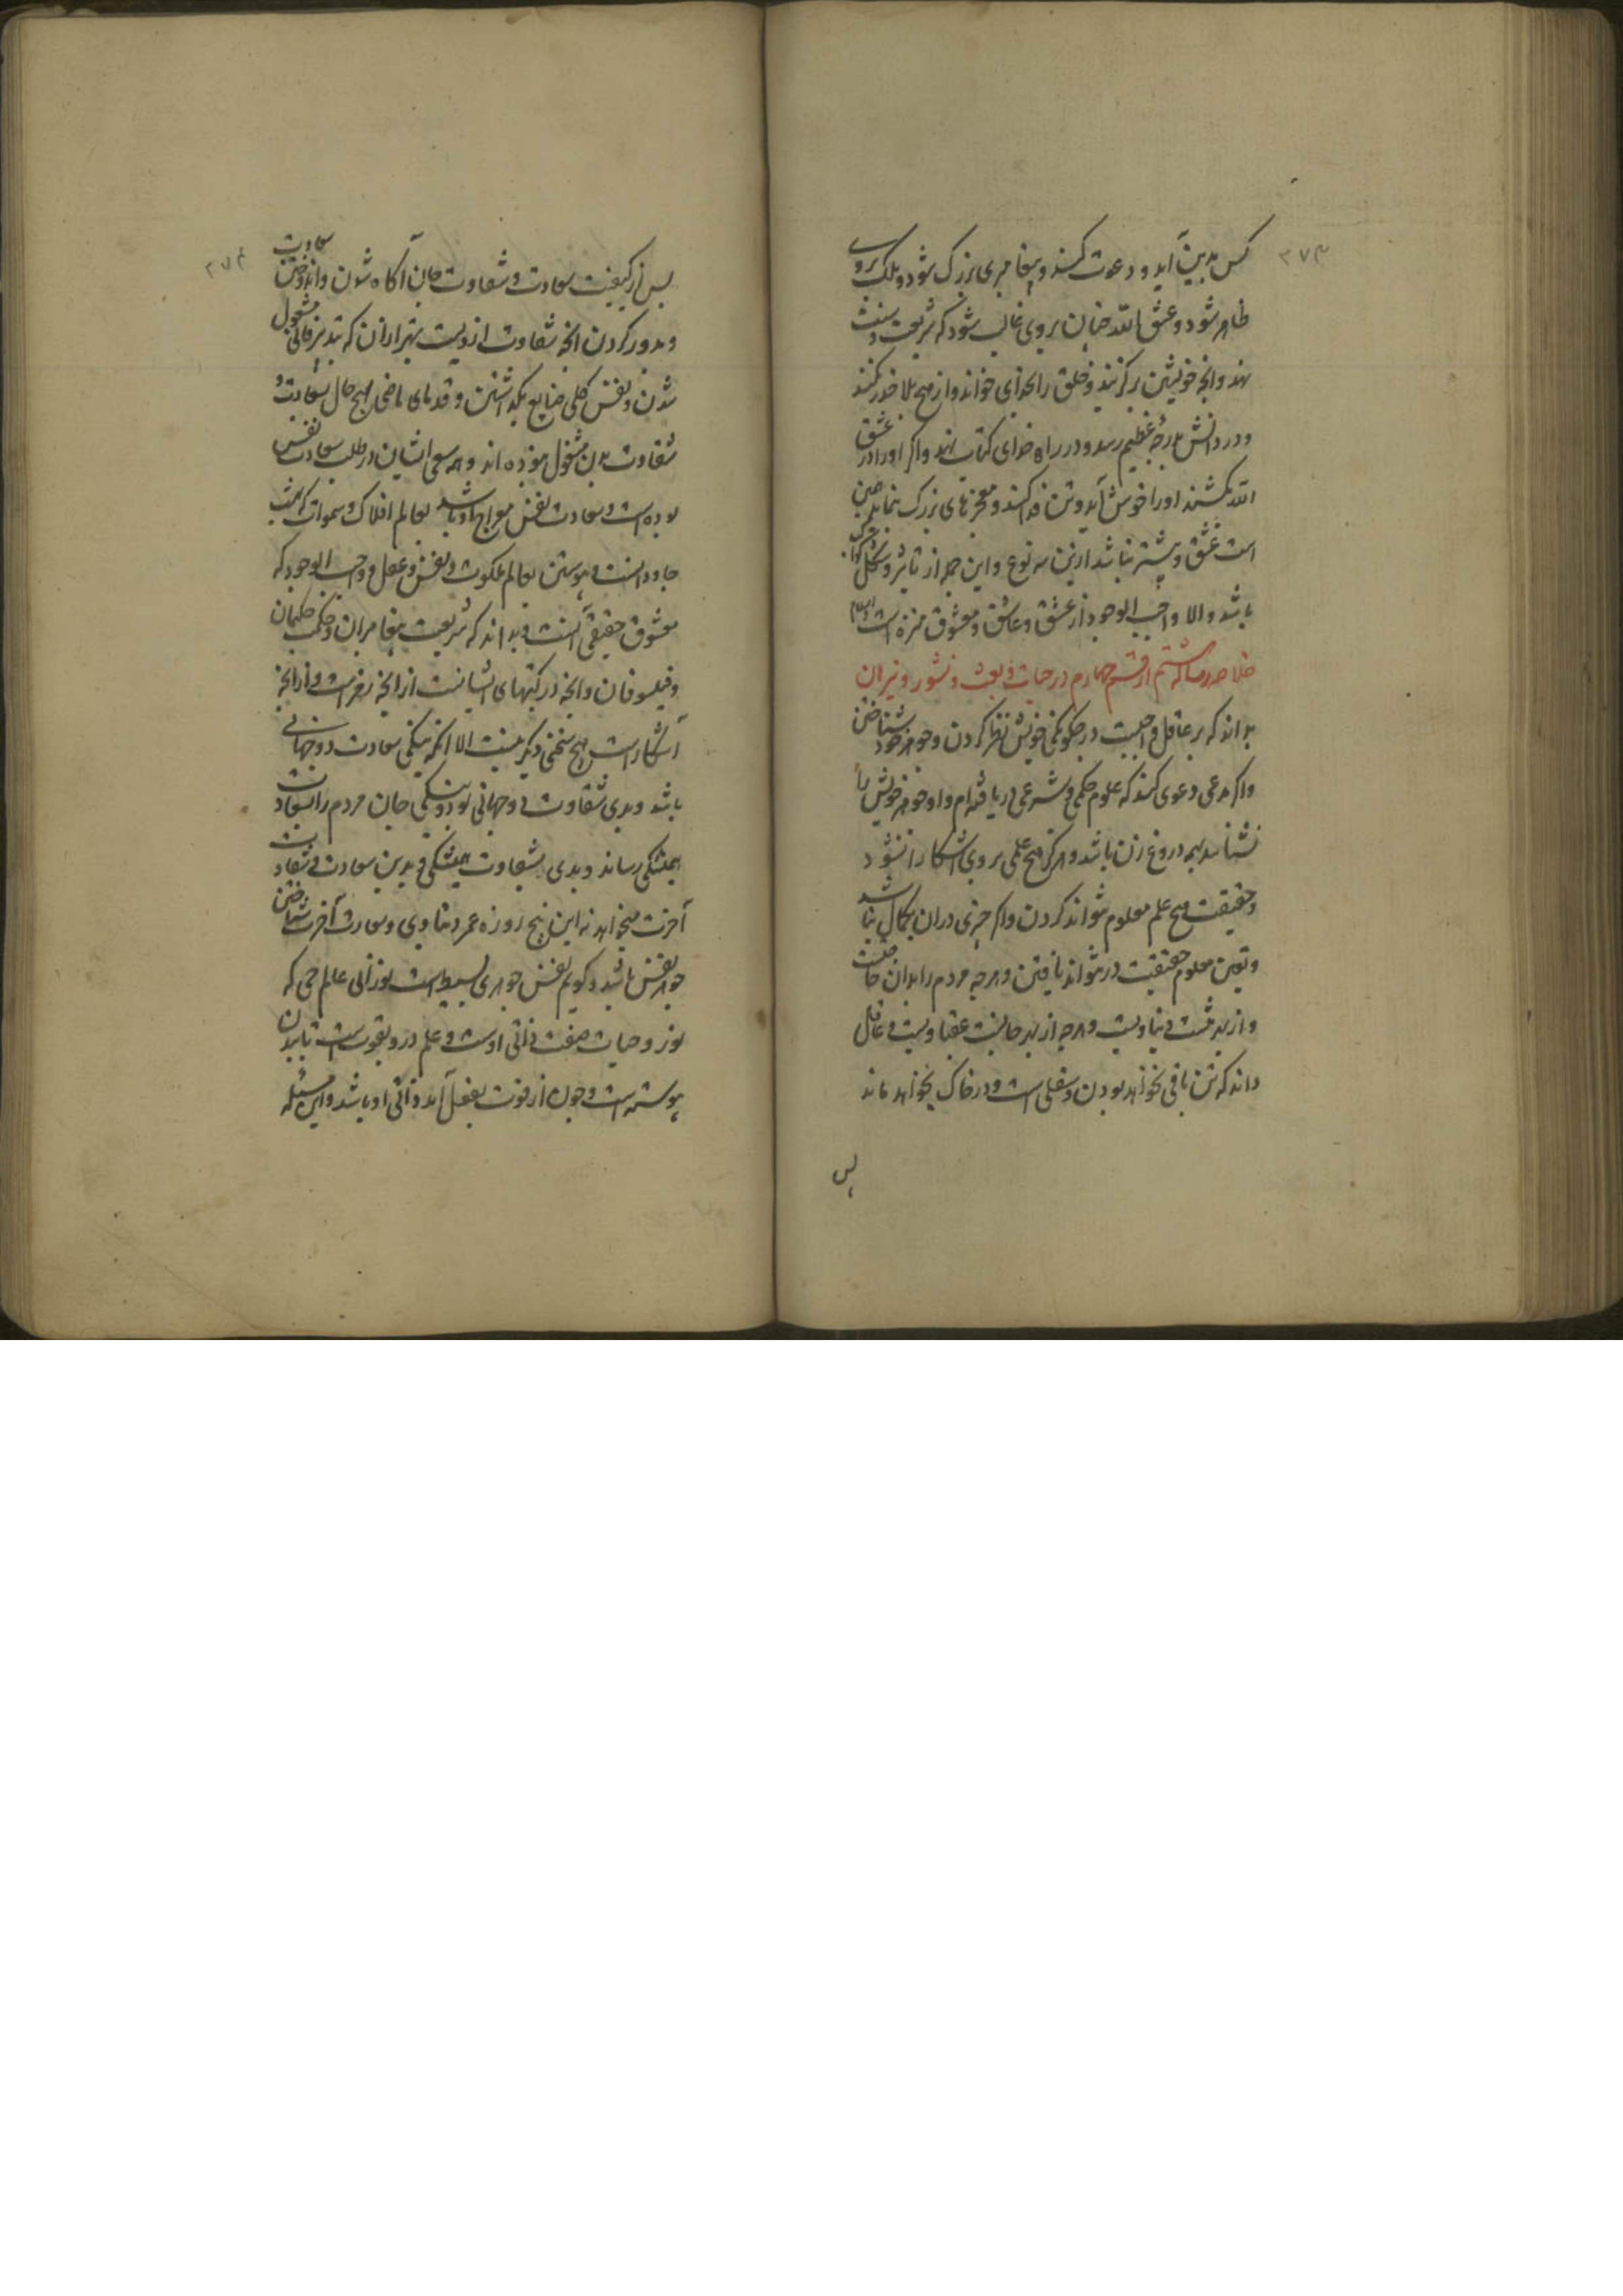 ۲۷۳
کس بدین آید و دعوت کند و پیغامبری بزرگ شود و ملک بروی
ظاهر شود و عشق الله چنان بروی غالب شود که شریعت و سنت
نهد و انچه خویشتن برگزیند و خلق را بخدای خواند و از هیچ بلا حذر نکند
و در دانش بدرجه عظیم رسد و در راه خدای کتاب نهد و اگر او را در عشق
الله بکشند او را خوش آید و تن فدا کند و معجزهای بزرگ بنماید چنین
است عشق و بیشتر نباشد ازین سه نوع و این جمله از تاثیر و شکل کواکب
باشد والا واجب الوجود از عشق و عاشق و معشوق منزه است والسلام
خلاصه رساله ششم از قسم چهارم در حیات و بعث و نشور و نیران
بداند که بر عاقل واجبست در چگونگی خویش نظر کردن و جوهر خود شناختن
و اگر مدعی دعوی کند که علوم حکمی و شرعی دریافته‌ام و او جوهر خویش را
نشناسد همه دروغ زن باشد و هرگز هیچ علمی بروی آشکارا نشود
و حقیقت هیچ علم معلوم نتواند کردن و اگر چیزی دران بکمال نباشد
و یقین معلوم حقیقت در نتواند یافتن و هر چه مردم را بدان حاجتست
و از بهر تنست دنیاویست و هر چه از بهر جانست عقباویست و عاقل
داند که تن باقی نخواهد بودن و سفلی است و در خاک بخواهد ماند
پس
۲۷۴
پس از کیفیت سعادت و شقاوت جان آگاه شدن و اندوختن سعادت
و بدور کردن انچه شقاوت ازویست بهتر ازان که بتدبیر فانی مشغول
شدن و نفس کلی ضایع بگذاشتن و قدمای ماضی بهیچ حال بسعادت و
شقاوت بدن مشغول نبوده‌اند و همه سعی ایشان در طلب سعادت نفس
بوده است و سعادت نفس معراج او باشد بعالم افلاک و سموات که بهشت
جاودانست و پیوستن بعالم ملکوت و نفس و عقل و واجب الوجود که
معشوق حقیقی آنست و بداند که شریعت پیغامبران و حکمت حکیمان
و فیلسوفان و انچه در کتبهای ایشانست از انچه رمز است و از انچه
آشکار است هیچ سخنی دیگر نیست الا آنکه نیکی سعادت دو جهانی
باشد و بدی شقاوت دو جهانی بود و نیکی جان مردم را بسعادت
همیشگی رساند و بدی بشقاوت همیشگی و بدین سعادت و شقاوت
آخرت میخواهد نه این پنج روزه عمر دنیاوی و سعادت آخرت شناختن
جوهر نفس باشد و گویم نفس جوهری بسیط است نورانی عالم حی که
نور و حیات صفت ذاتی اوست و علم درو بقوت است تا ببدن
پیوسته است و چون از قوت بفعل آید ذاتی او باشد و این مسئله